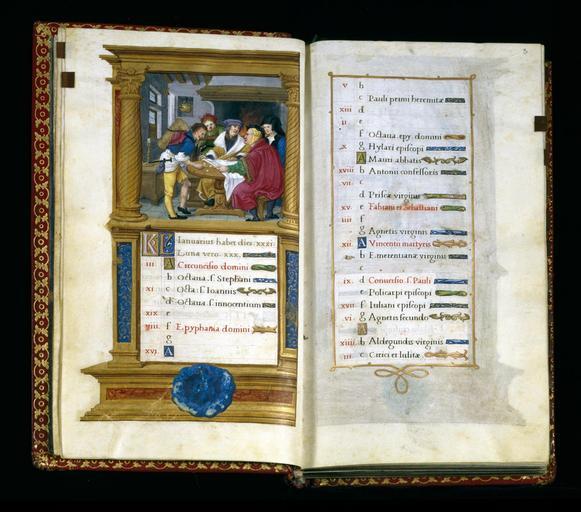 KL Ianuarius habet dies xxxi
Luna vero xxx
iii A Circuncisio domini
b Octaua s. Stephani
xi c Octa: s. Ioannis
d Octaua s. innocentium
xix e
viii f Epyphania domini
g
xvi A
3
v b
c Pauli primi heremitæ
xiii d
ii e
f Octaua epy. domini
x g Hylari episcopi
A Mauri abbatis
xviii b Antonii confessoris
vii c
d Priscæ virginis
xv e Fabiani et Sebastiani
iiii f
g Agnetis virginis
xii A Vincentii martyris
b Emerentianæ virginis
ix d Conuersio s. Pauli
e Policarpi episcopi
xvii f Iuliani episcopi
vi g Agnetis secundo
A
xiiii b Aldegundis virginis
iii c Cirici et Iulitæ